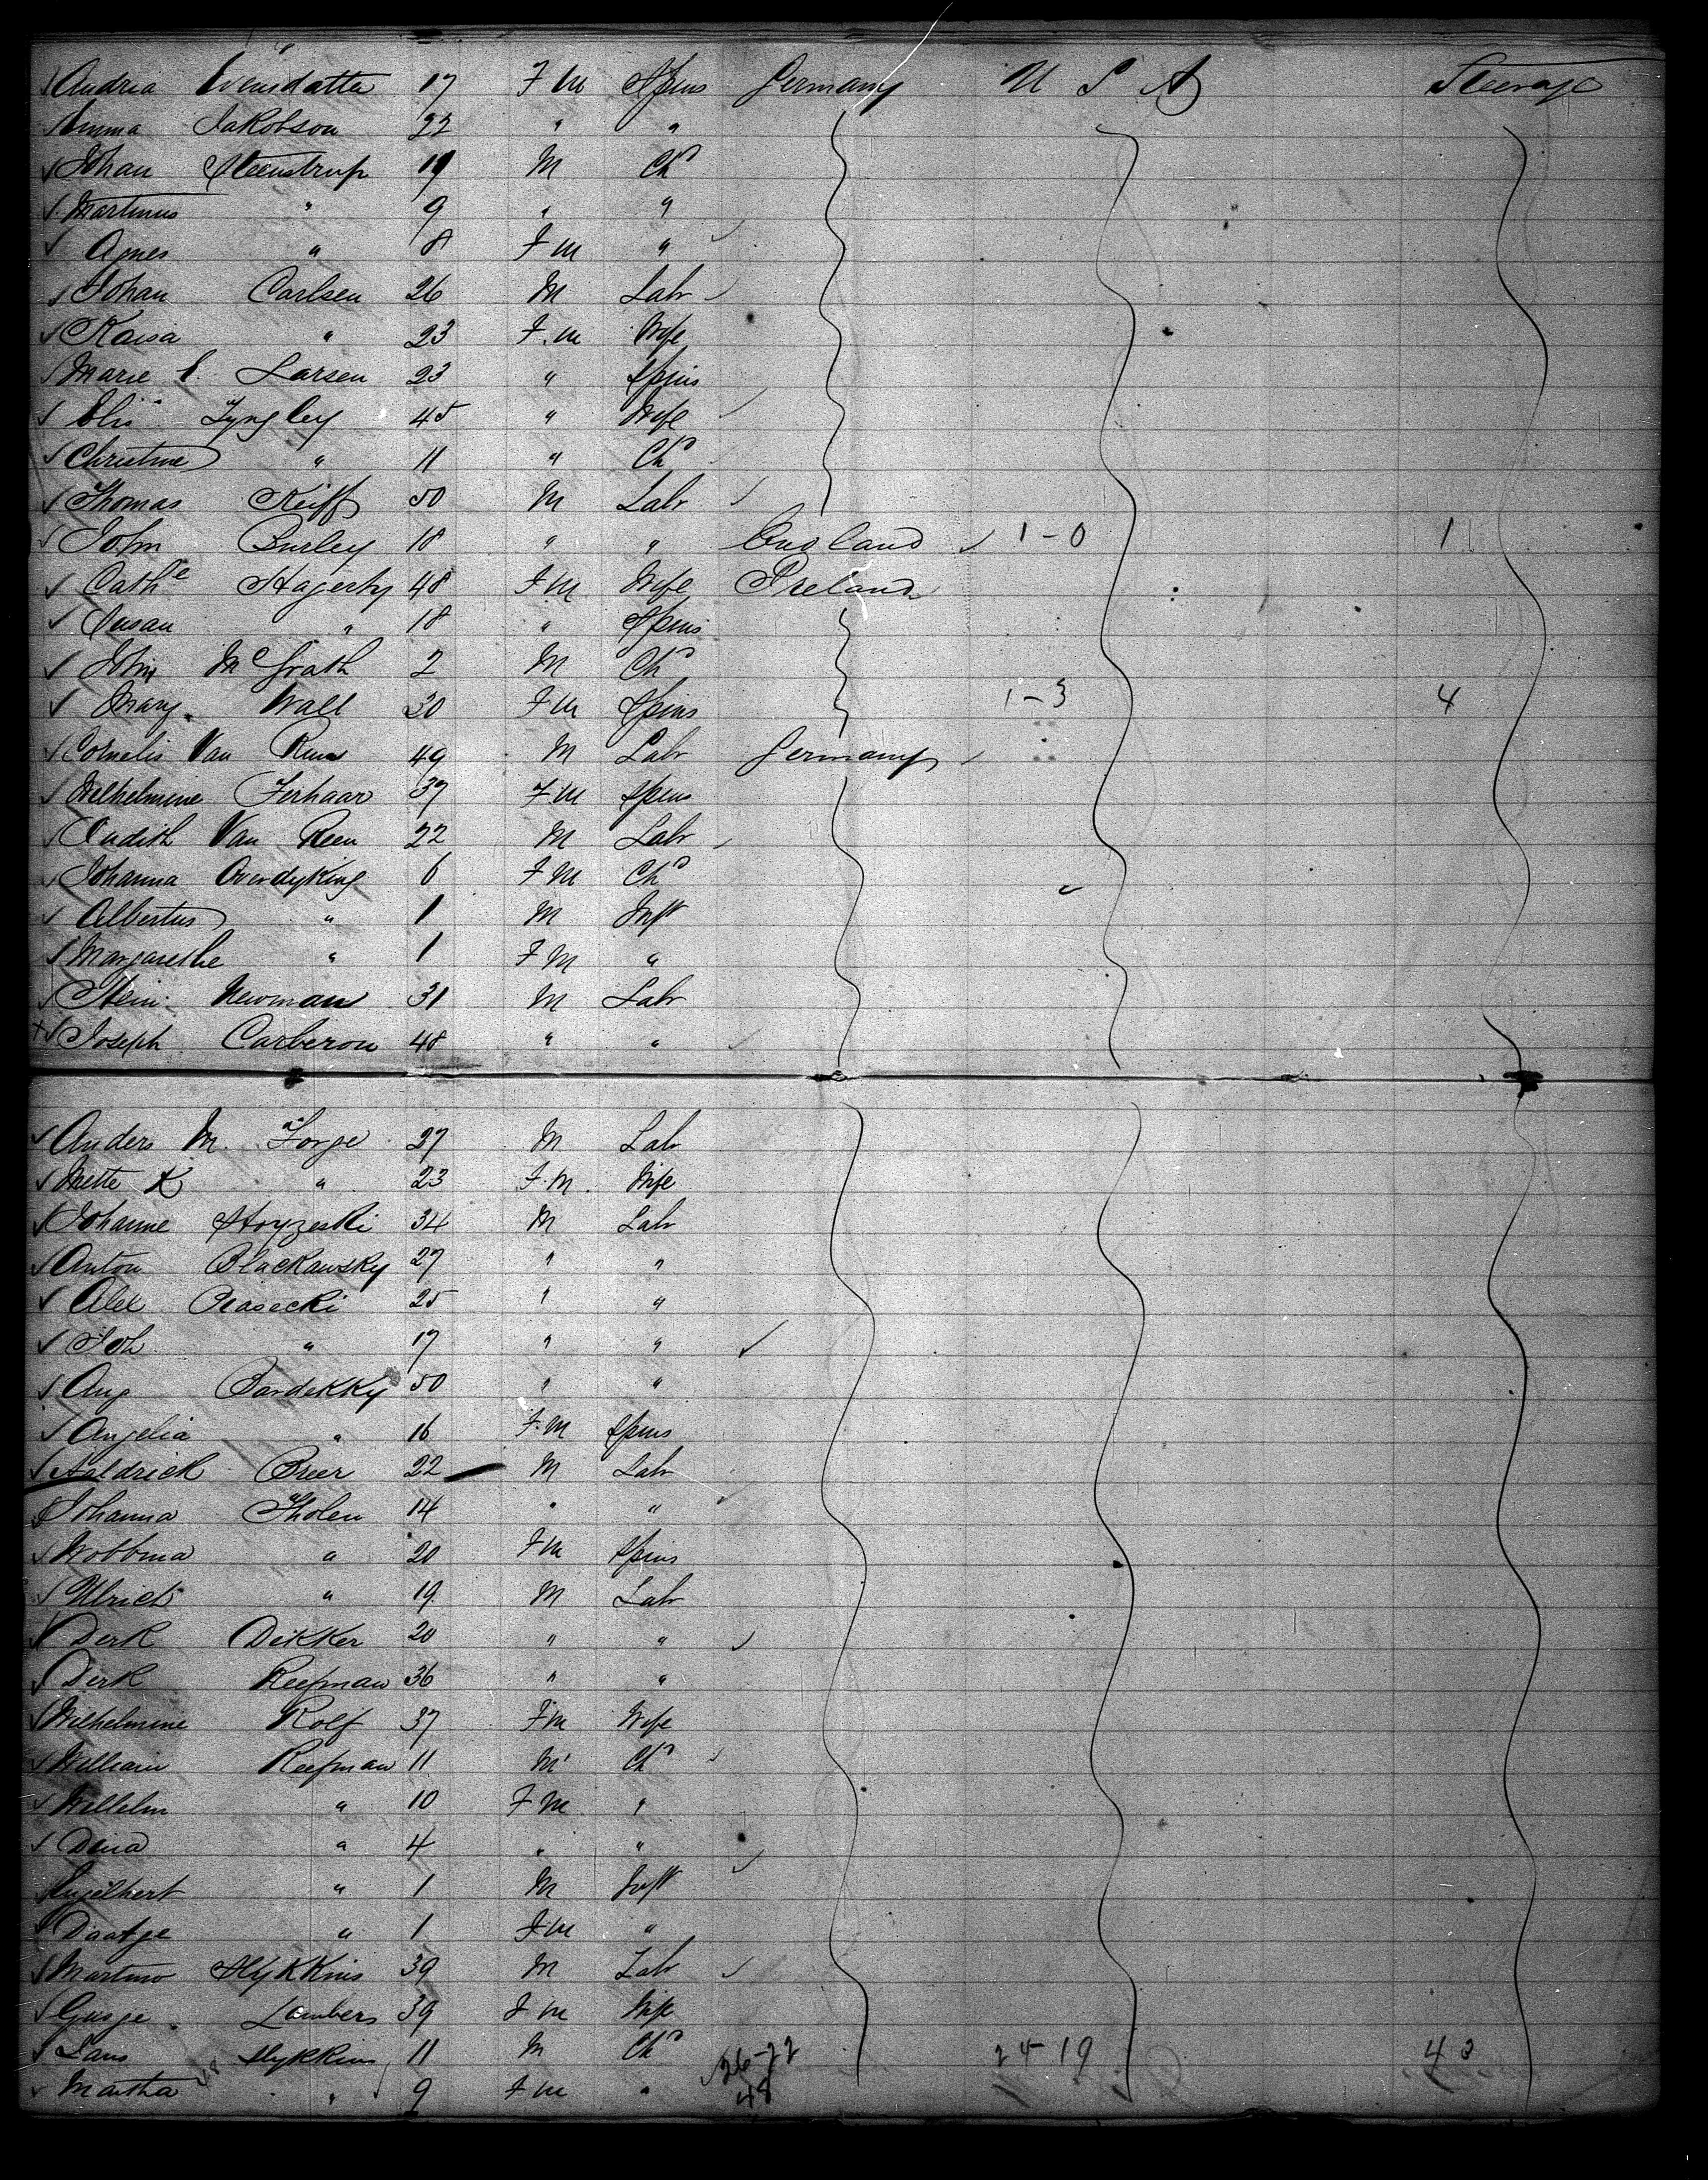 Andrea Svensdatta 17 F M Spins Germany U S A Steerage
Emma Jakobson 22 " "
Johan Steenstrup 19 M Chd
Martinus " 9 " "
Agnes " 8 F M "
Johan Carlsen 26 M Labr
Kaisa " 23 F. M Wife
Marie Larsen 23 " Spins
Elis Lyngley 45 " Wife
Christine " 11 " Chd
Thomas Keiff 50 M Labr
John Burley 18 " " England 1-0 1
Cathe Hagerty 48 F M Wife Ireland
Susan " 18 " Spins
John McGrath 2 M Chd
Mary Wall 30 F M Spins 1-3 4
Cornelis Van 49 M Labr Germany
Wilhelmine Terhaar 37 F M Spins
Judith Van Reen 22 M Labr
Johanna Overdyking 6 F M Chd
Albertus " 1 M Inft
Margarethe " 1 F M "
Stein Newman 31 M Labr
Joseph Carberou 48 " "
Anders M. Torge 27 M Lab
Mette K " 23 F. M. Wife
Johanne 34 M Lab
Anton Blackawsky 27 " "
Alex Piasecki 25 " "
Joh " 17 " "
Aug Bardekky 50 " "
Angelia " 16 F. M Spins
Aaldrick Breer 22 M Lab
Johanna Tholen 14 " "
Wobbina " 20 F M Spins
Ulrich " 19 M Lab
Derk Dekker 20 " "
Derk Reepmaw 36 " "
Wilhelmine Rolf 37 F M Wife
William Reepmaw 11 M Chd
Willelm " 10 F M "
Dina " 4 " "
Engelbert " 1 M Inft
Daatje " 1 F M "
Martino Slykkins 39 M Lab
Lambers 39 F M Wife
Slykkins 11 M Chd 26-22 24-19 43
Martha " 9 F M " 48